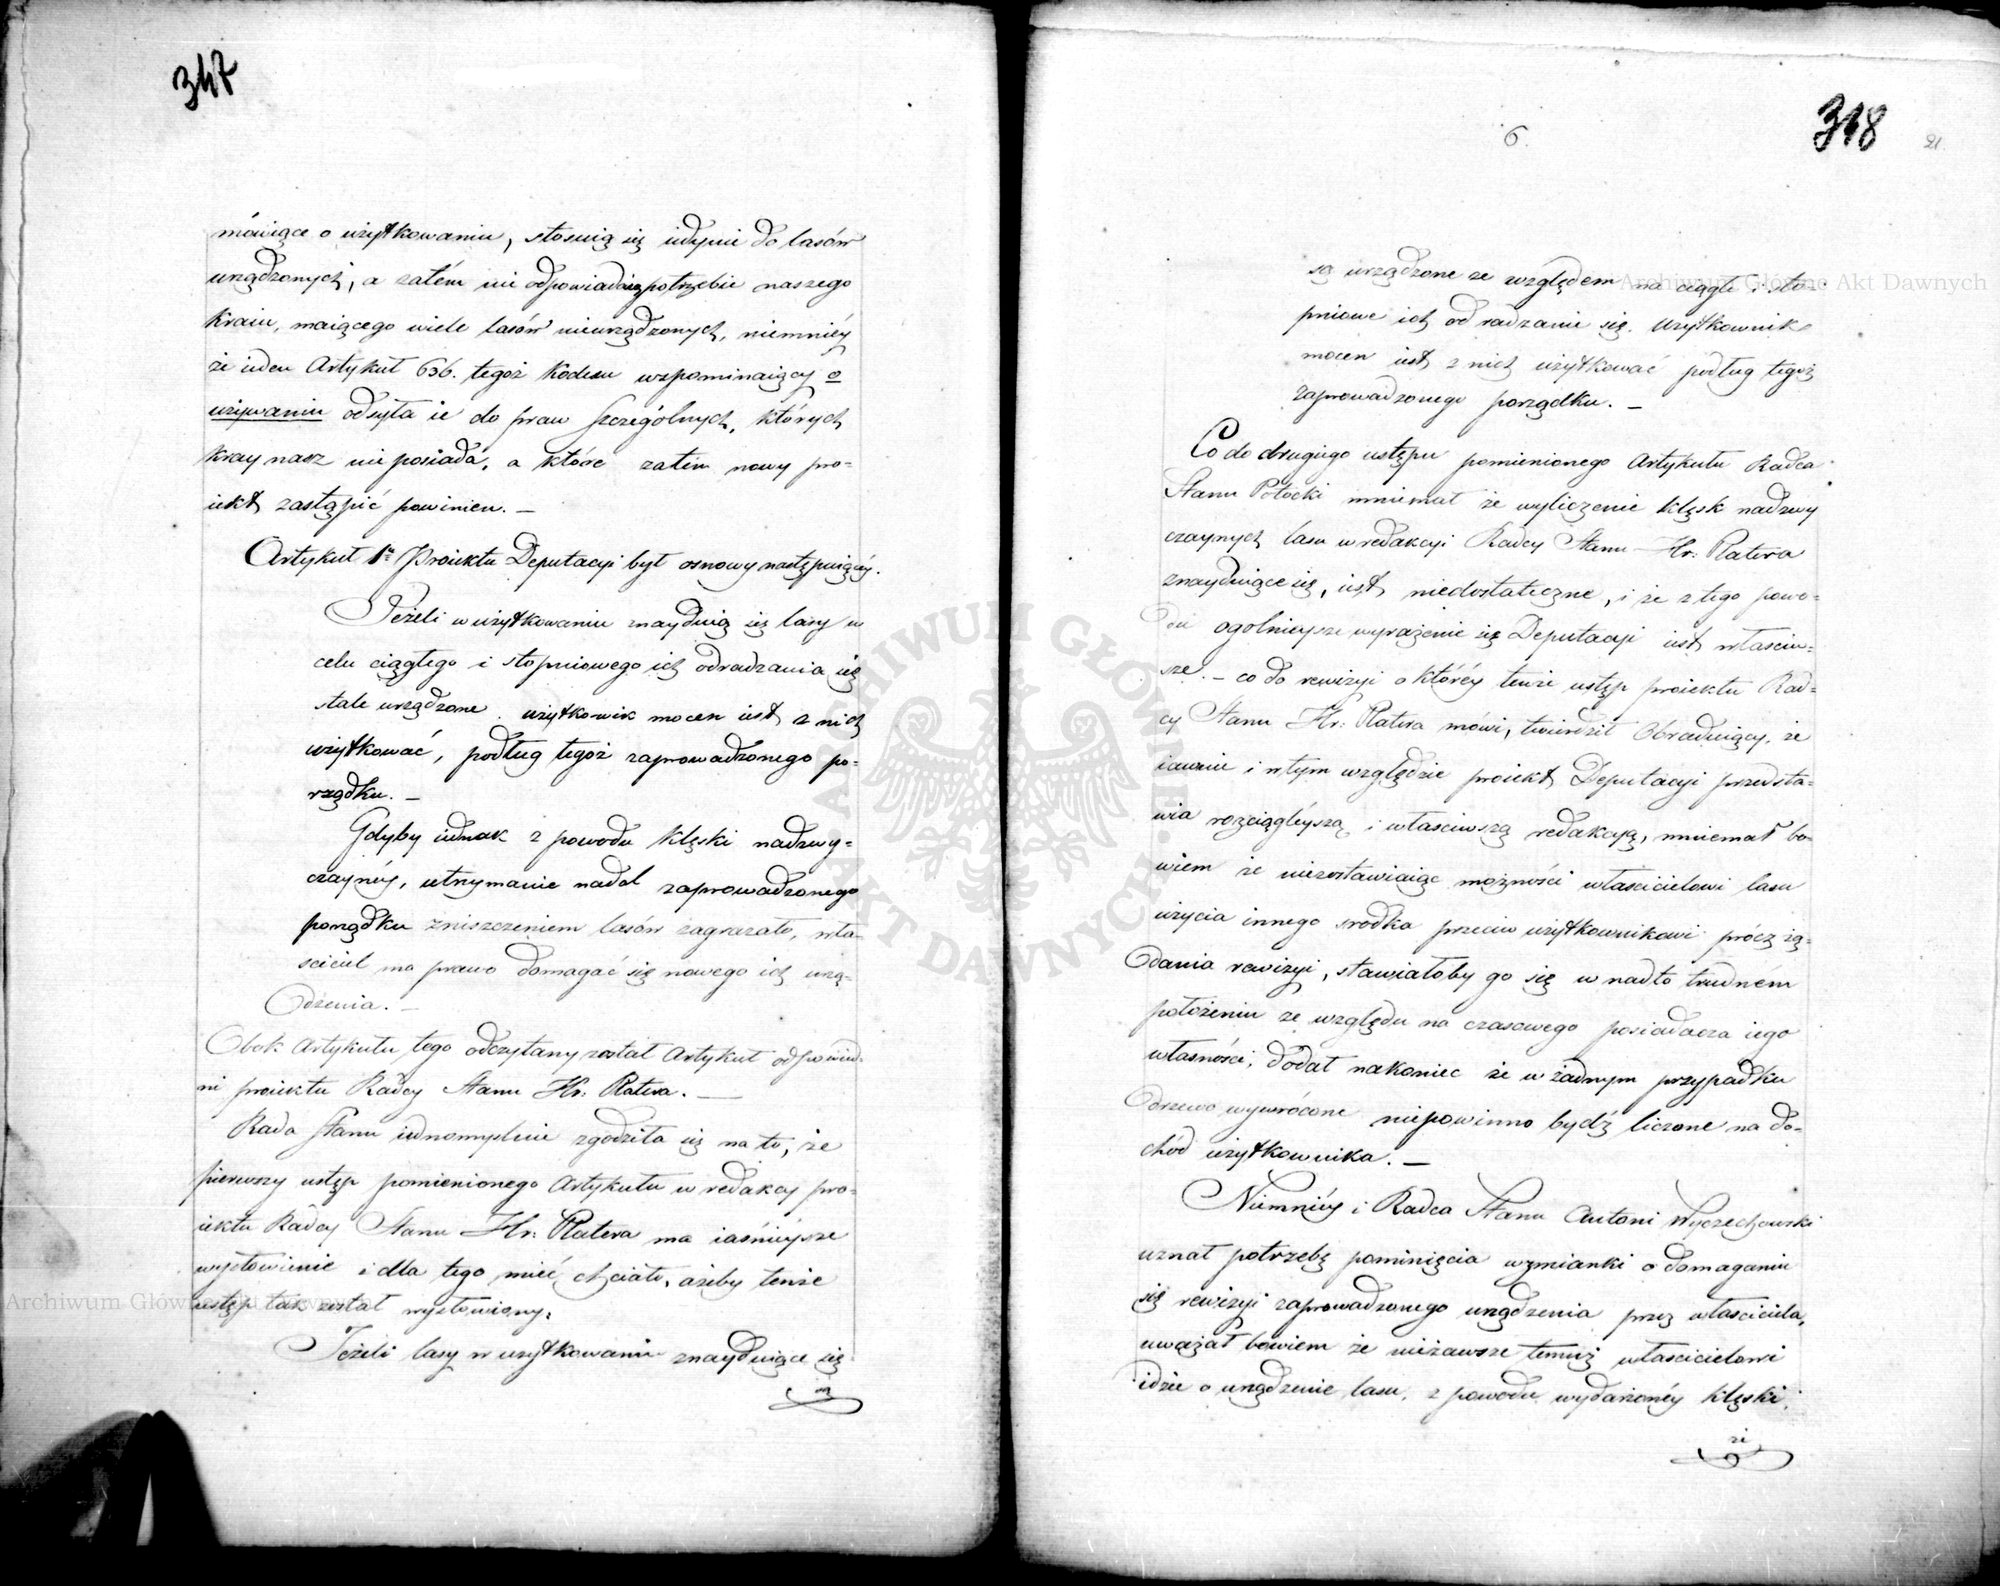 347
mówiące o użytkowaniu, stosuią się iedynie do lasów
urządzonych, a zatém nie odpowiadaią potrzebie naszego
kraiu, maiącego wiele lasów nieurządzonych, niemniéy
że ieden Artykuł 636. tegoż Kodexu wspominaiący o
używaniu odsyła ie do praw szczególnych, których
kray nasz nie posiada, a które zatém nowy pro-
iekt zastąpić powinien. —
Artykuł 1º Proiektu Deputacyi był osnowy następuiącéy.
Jeżeli w użytkowaniu znayduią się lasy w
celu ciągłego i stopniowego ich odradzania się
stale urządzone, użytkowik mocen iest z nich
użytkować, podług tegoż zaprowadzonego po-
rządku. —
Gdyby iednak z powodu klęski nadzwy-
czaynéy, utrzymanie nadal zaprowadzonego
porządku zniszczeniem lasów zagrażało, wła-
ściciel ma prawo domagać się nowego ich urzą-
dzenia. —
Obok Artykułu tego odczytany został Artykuł odpowied-
ni proiektu Radcy Stanu Hr: Platera. —
Rada Stanu iednomyślnie zgodziła się na to, że
pierwszy ustęp pomienionego Artykułu w redakcyi pro-
iektu Radcy Stanu Hr: Platera ma iaśnieysze
wysłowienie i dla tego mieć chciała, ażeby tenże
ustęp tak został wysłowiony:
Jeżeli lasy w użytkowaniu znayduiące się
6.
318
21
są urządzone ze względem na ciągłe i sto-
pniowe ich odradzanie się. Użytkownik
mocen iest z nich użytkować podług tegoż
zaprowadzonego porządku. —
Co do drugiego ustępu pomienionego Artykułu Radca
Stanu Potocki mniemał że wyliczenie klęsk nadzwy
czaynych lasu w redakcyi Radcy Stanu Hr: Platera
znayduiące się, iest niedostateczne, i że z tego powo-
du ogólnieysze wyrażenie się Deputacyi iest właściw-
sze. — co do rewizyi o któréy tenże ustęp proiektu Rad-
cy Stanu Hr: Platera mówi, twierdził Obraduiący, że
równie i w tym względzie proiekt Deputacyi przedsta-
wia rozciągléyszą i właściwszą redakcyą, mniemał bo-
wiem że niezostawiaiąc możności właścicielowi lasu
użycia innego srodka przeciw użytkownikowi prócz żą-
dania rewizyi, stawiałoby go się w nadto trudném
położeniu ze względu na czasowego posiadacza iego
własności; dodał nakoniec że w żadnym przypadku
drzewo wywrócone niepowinno bydź liczone na do-
chód użytkownika. —
Niemniéy i Radca Stanu Antoni Wyczechowski
uznał potrzebę pominięcia wzmianki o domaganiu
się rewizyi zaprowadzonego urządzenia przez właściciela,
uważał bowiem że niezawsze temuż właścicielowi
idzie o urządzenie lasu, z powodu wydarzonéy klęski,
zi
Archiwum Główne Akt Dawnych
Archiwum Główne Akt Dawnych
ARCHIWUM GŁÓWNE AKT DAWNYCH